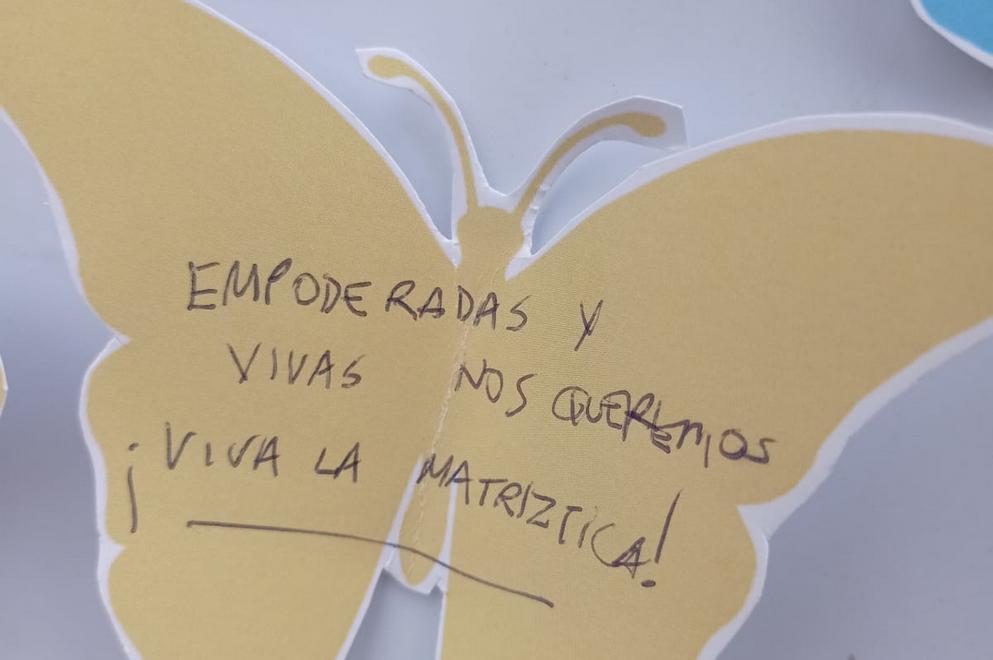 EMPODERADAS Y
VIVAS NOS QUEREMOS
¡VIVA LA MATRIZTICA!